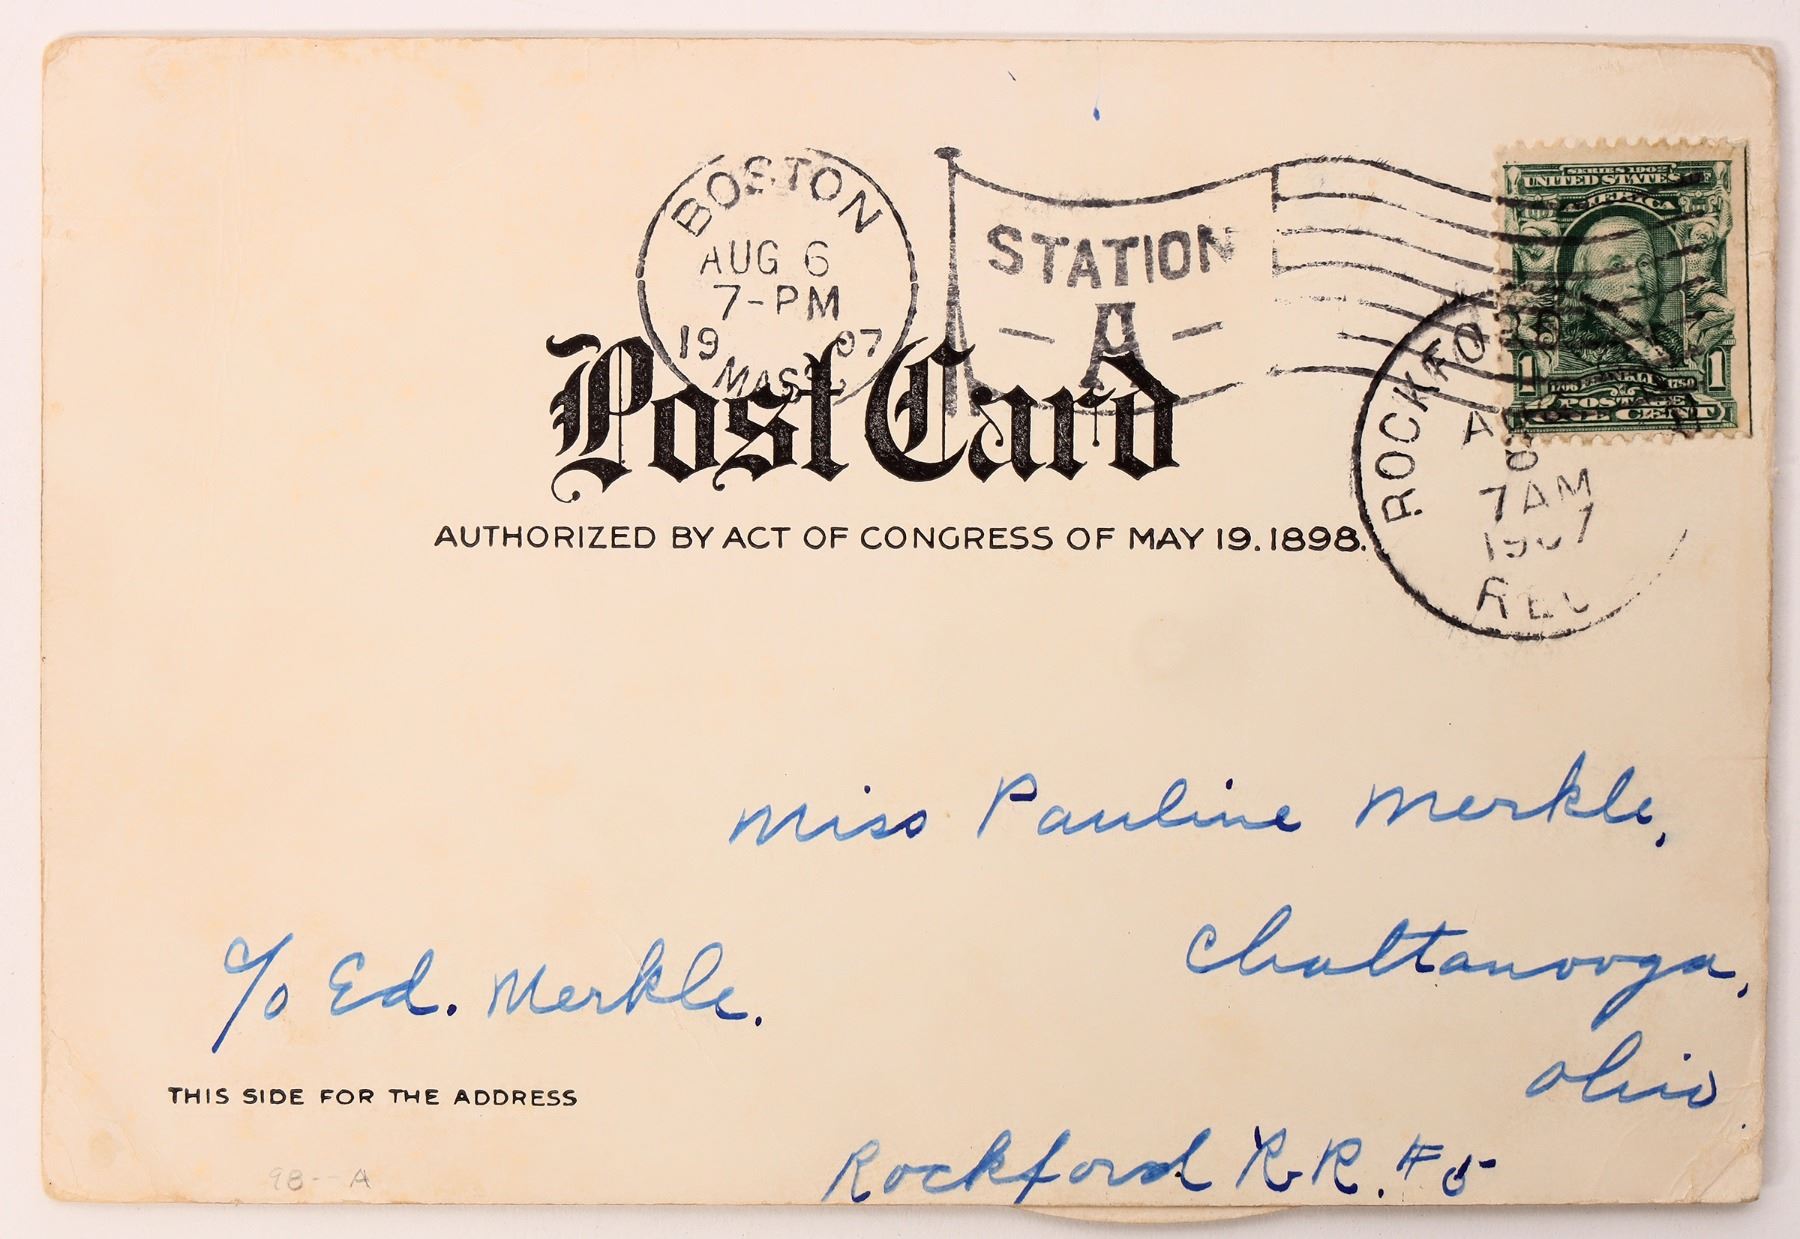 BOSTON
AUG 6
7-PM
19 07
MASS.
STATION
A
SERIES 1902
UNITED STATES OF
AMERICA
1 1
FRANKLIN
POSTAGE
ONE CENT
ROCKFORD
7 AM
1907
REC
Post Card
AUTHORIZED BY ACT OF CONGRESS OF MAY 19. 1898.
Miss Pauline Merkle,
Chattanooga,
Ohio
c/o Ed. Merkle.
THIS SIDE FOR THE ADDRESS
Rockford R.R. #5
98--A